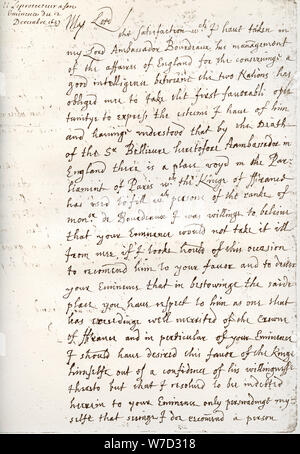 Le protecteur a son
Eminence du 12
Decembre 1657
My Lord
the Satisfaction wch I haue taken in
my Lord Ambassador Bourdeaux his management
of the affaires of England for the conserving a
good intelligence betwixt the two Nations has
obliged mee to take the first favorable oppor
tunitye to express the esteeme I have of him
and having understood that by the Death
of the Sr Bellievre heretofore Ambassador in
England there is a place voyd in the Par
liament of Paris wch the Kinge of ffrance
has used to fill wth persons of the ranke of
monsr de Bourdeaux I was willinge to believe
that your Eminence would not take it ill
from mee if I tooke hould of this occasion
to recomend him to your favor and to desire
your Eminence that in bestowinge the saide
place you haue respect to him as one that
has exceedinge well merited of the Crowne
of ffrance and in particular of your Eminence
I should haue desired this favor of the Kinge
himselfe out of a confidence of his willingnesse
thereto but that I resolved to be indebted
herein to your Eminence only perswadinge my
selfe that seeinge I doe recomend a person
alamy
W7D318